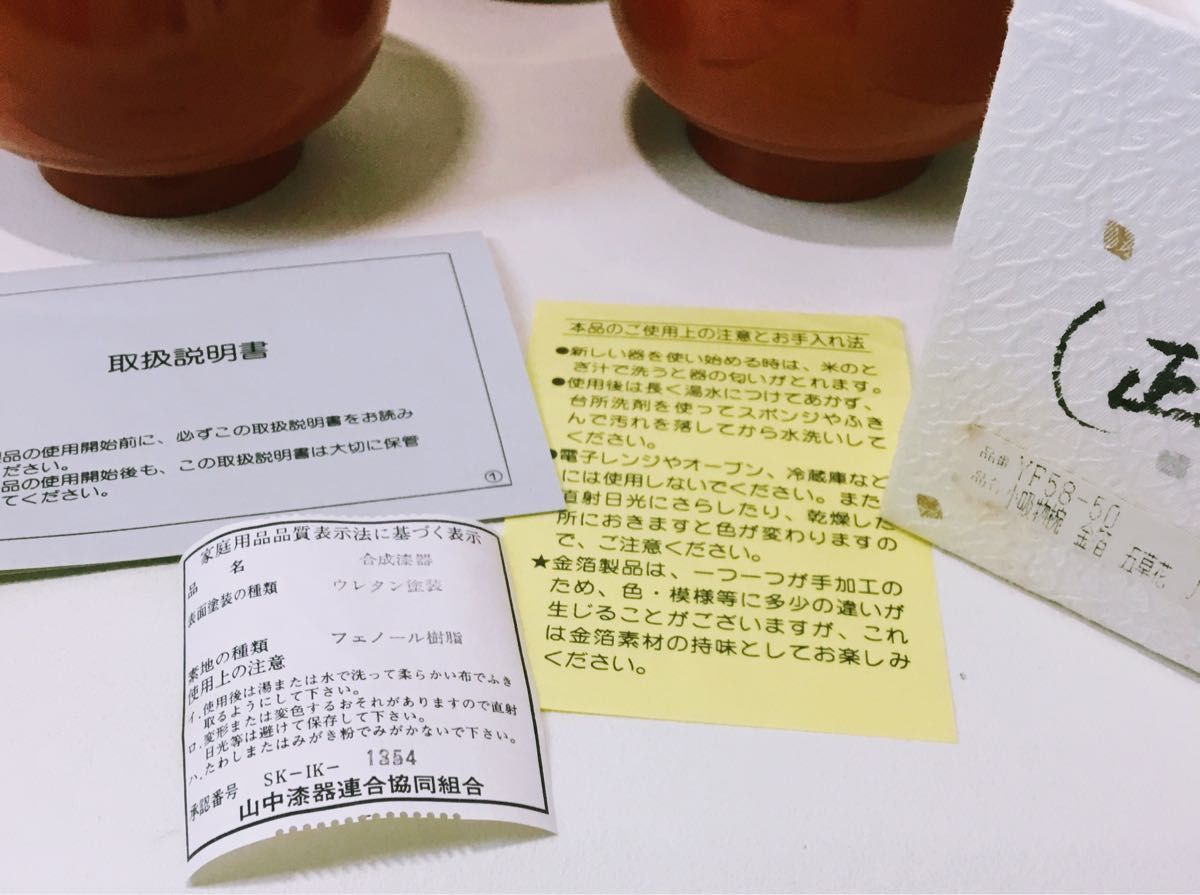 取扱説明書
品の使用開始前に、必ずこの取扱説明書をお読み
ください。
品の使用開始後も、この取扱説明書は大切に保管
てください。
①
本品のご使用上の注意とお手入れ法
●新しい器を使い始める時は、米のと
ぎ汁で洗うと器の匂いがとれます。
●使用後は長く湯水につけておかず、
台所洗剤を使ってスポンジやふき
んで汚れを落してから水洗いして
ください。
●電子レンジやオーブン、冷蔵庫など
には使用しないでください。また
直射日光にさらしたり、乾燥した
所におきますと色が変わりますの
で、ご注意ください。
★金箔製品は、一つ一つが手加工の
ため、色・模様等に多少の違いが
生じることがございますが、これ
は金箔素材の持味としてお楽しみ
ください。
家庭用品品質表示法に基づく表示
品名 合成漆器
表面塗装の種類 ウレタン塗装
素地の種類 フェノール樹脂
使用上の注意
イ.使用後は湯または水で洗って柔らかい布でふき
取るようにして下さい。
ロ.変形または変色するおそれがありますので直射
日光等は避けて保存して下さい。
ハ.たわしまたはみがき粉でみがかないで下さい。
承認番号 SK-IK-1354
山中漆器連合協同組合
品番 YF58-50
品名 小吸物椀 金箔 五草花